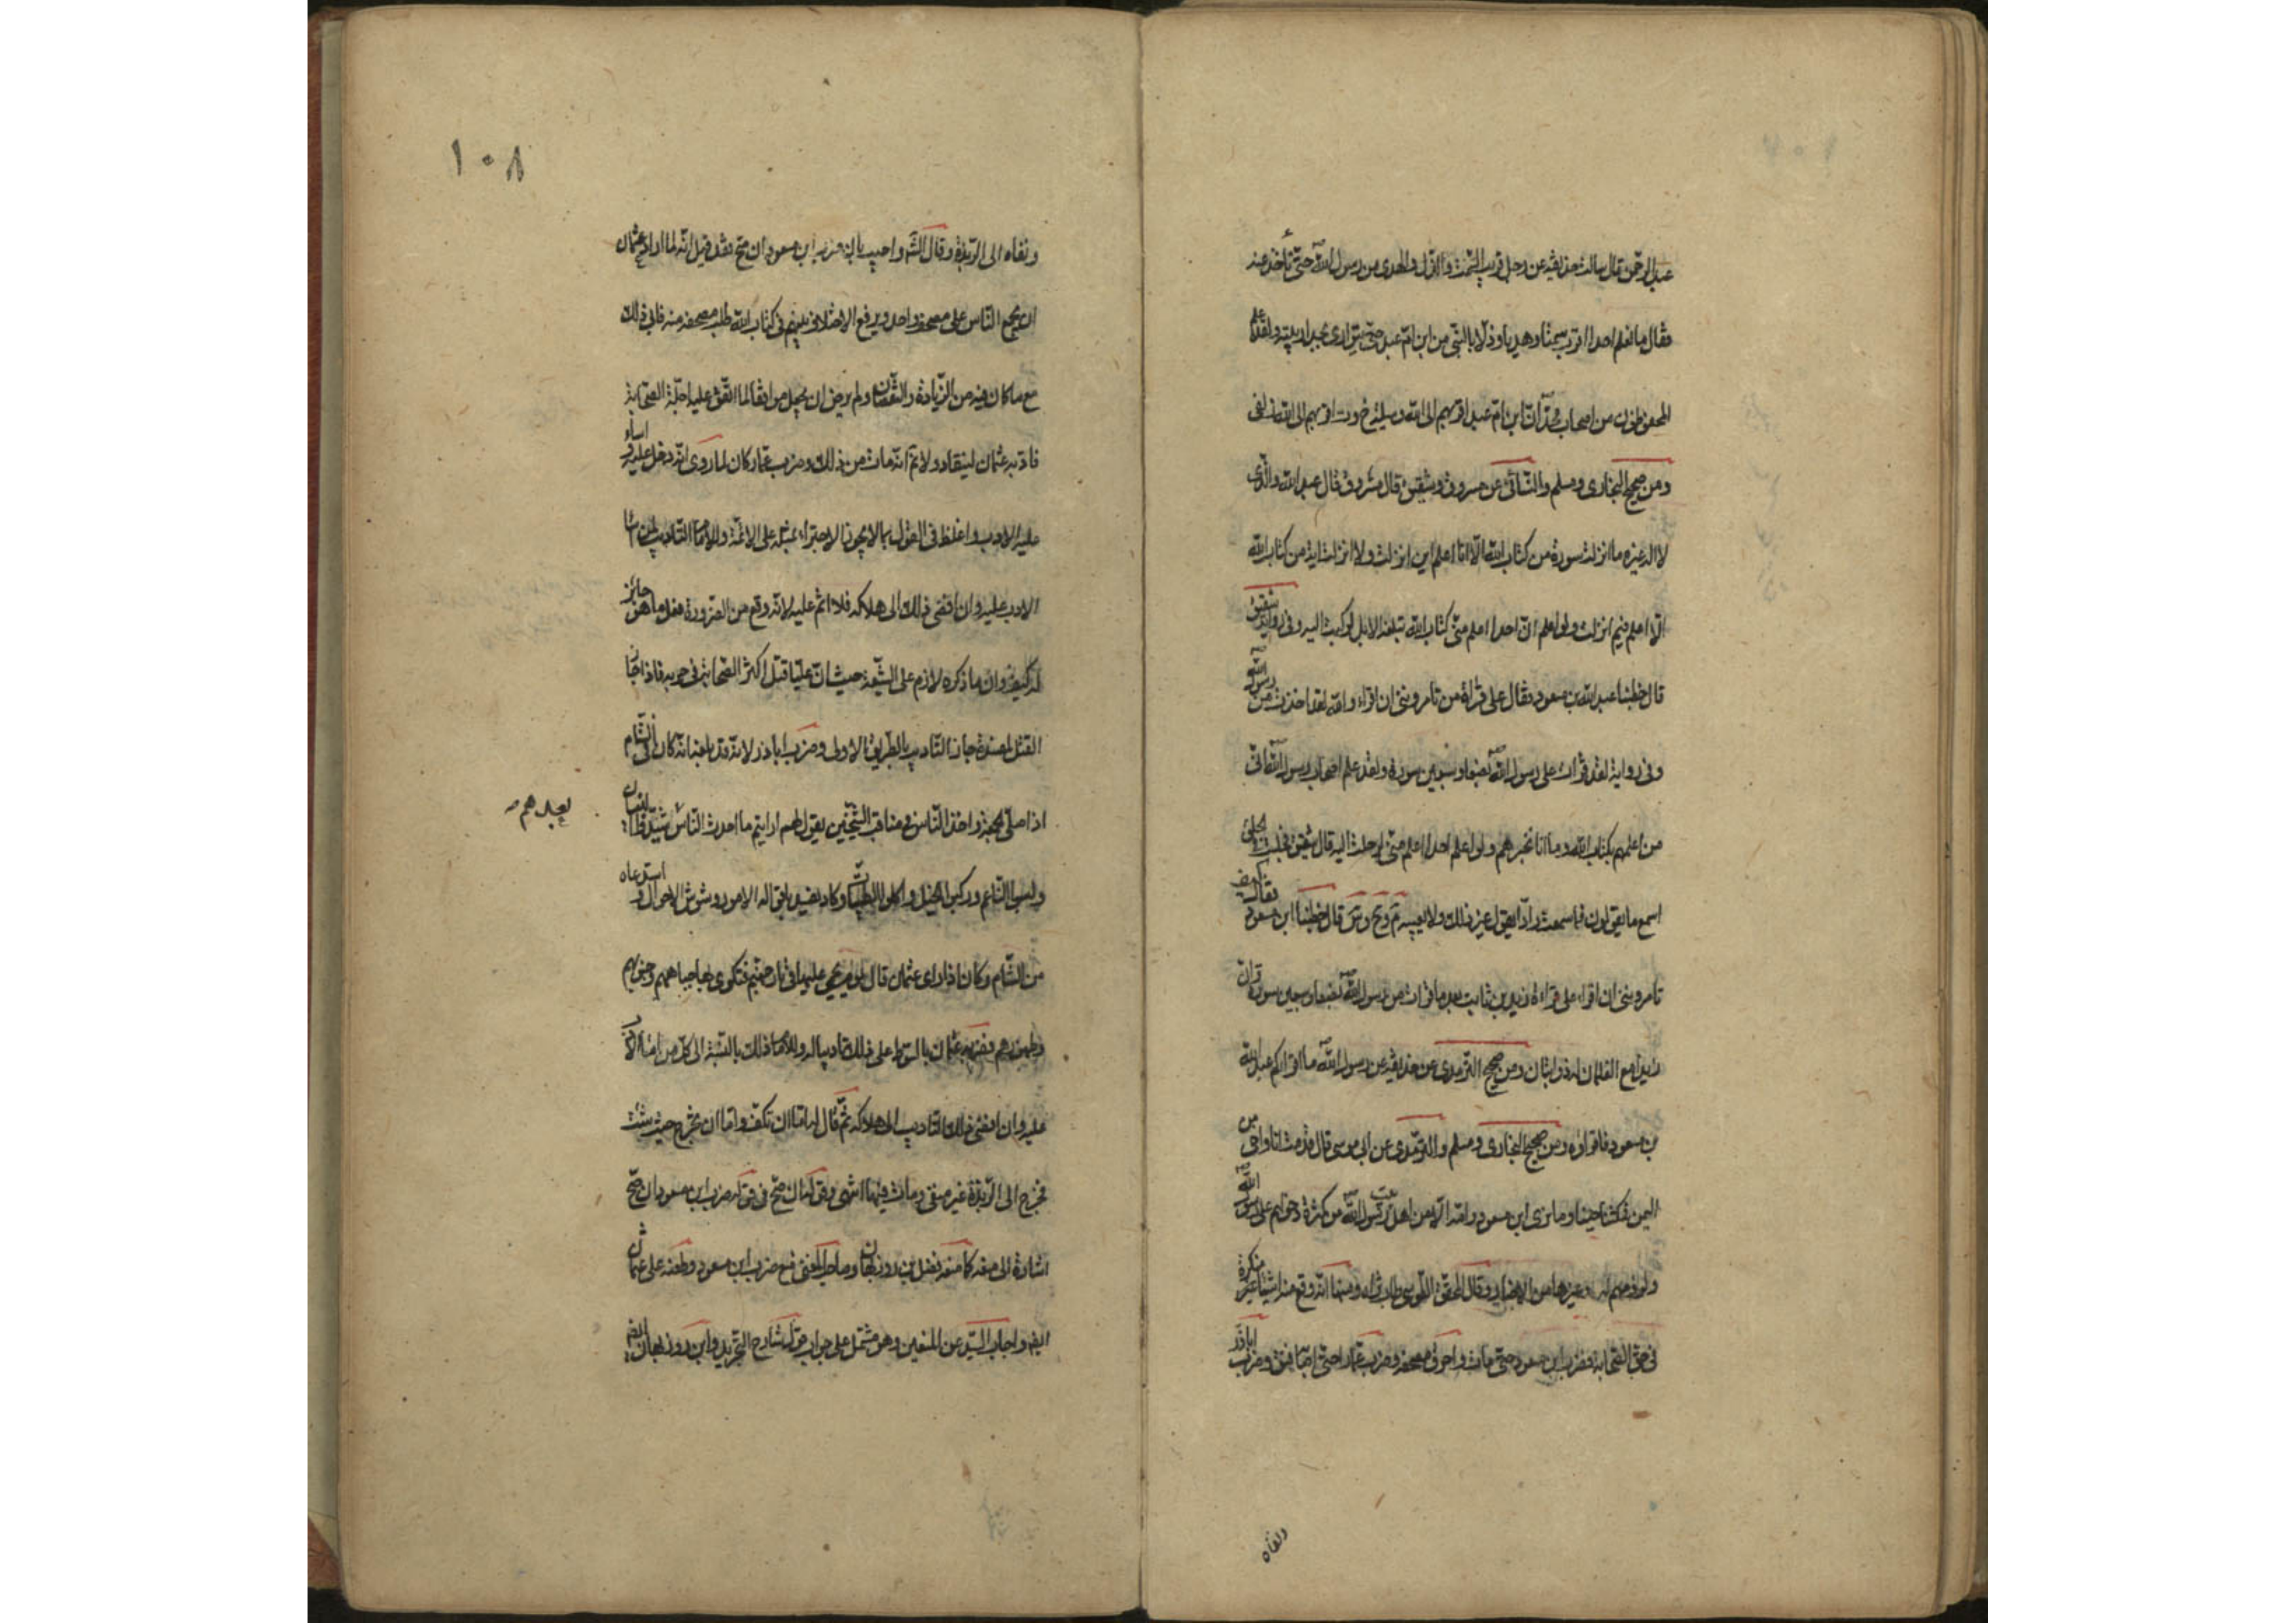 عبد الرحمن قال سالت حذيفة عن رجل قريب السمت والدل والهدى من رسول الله ص حتى نأخذ عنه
فقال ما نعلم احدا اقرب سمتا وهديا ودلا بالنبي من ابن ام عبد حتى يتوارى بجدار بيته ولقد علم
المحفوظون من اصحاب محمد ان ابن ام عبد اقربهم الى الله وسيلة اقربهم الى الله زلفى
ومن صحيح البخارى ومسلم والنسائى عن مسروق وشقيق قال مسروق قال عبد الله والذى
لا اله غيره ما انزلت سورة من كتاب الله الا انا اعلم اين انزلت ولا انزلت اية من كتاب الله
الا اعلم فيم انزلت ولو اعلم ان احدا اعلم منى كتاب الله تبلغه الابل لركبت اليه وفى رواية شقيق
قال خطبنا عبد الله بن مسعود فقال على قراءة من تامرونى ان اقراء والله لقد اخذت من رسول الله ص
وفى رواية لقد قرات على رسول الله ص بضعا وسبعين سورة ولقد علم اصحاب رسول الله ص انى
من اعلمهم بكتاب الله وما انا بخيرهم ولو اعلم احدا اعلم منى لرحلت اليه قال شقيق فجلست فى الحلق
اسمع ما يقولون فما سمعت رادا يقول غير ذلك ولا يعيبه قال خطبنا ابن مسعود فقال كيف
تامرونى ان اقراء على قراءة زيد بن ثابت بعد ما قرات من رسول الله ص بضعا وسبعين سورة وان
زيدا مع الغلمان له ذوابتان ومن صحيح الترمدى عن حذيفة عن رسول الله ص ما اقراكم عبد الله
بن مسعود فاقراوه ومن صحيح البخارى ومسلم والترمدى عن ابى موسى قال قدمت انا واخى من
اليمن فمكثنا حينا وما نرى ابن مسعود وامه الا من اهل بيت رسول الله ص من كثرة دخولهم على رسول الله ص
ولزومهم له وغيرها من الاخبار وقال المحقق الطوسى طاب ثراه ومنها انه وقع منه اشياء منكرة
فى حق الصحابة فضرب ابن مسعود حتى مات واحرق مصحفه وضرب عمار حتى اصابه فتق وضرب اباذر
ونفاه
١٠٨
ونفاه الى الربذة وقال الش واجيب بان ضرب ابن مسعود ان صح فقد قيل انه لما اراد عثمان
ان يجمع الناس على مصحف واحد ويرفع الاختلاف بينهم فى كتاب الله طلب مصحفه منه فابى ذلك
مع ما كان فيه من الزيادة والنقصان ولم يرض ان يجعل موافقا لما اتفق عليه اجلة الصحابة
فادبه عثمان لينقاد ولا نم انه مات من ذلك وضرب عمار كان لما روى انه دخل عليه واساء
عليه الادب واغلظ فى القول بما لا يجوز الاجتراء بمثله على الائمة وللامام التاديب لمن اساء
الادب عليه وان افضى ذلك الى هلاكه فلا اثم عليه لانه وقع من الضرورة فعل ما هو جائز
له كيف وان ما ذكره لازم على الشيعة حيث ان عليا قتل اكثر الصحابة فى حربه فاذا جاز
القتل لمفسدة جاز التاديب بالطريق الاولى وضرب اباذر لانه قد بلغه انه كان فى الشام
اذا صلى الجمعة واخذ الناس فى مناقب الشيخين يقول لهم ارايتم ما احدث الناس شيدوا البنيان
بعدهم
ولبسوا الناعم وركبوا الخيل واكلوا الطيبات وكاد يفسد باقواله الامور ويشوش الاحوال فاستدعاه
من الشام وكان اذا راى عثمان قال يوم يحمى عليها فى نار جهنم فتكوى بها جباههم وجنوبهم
وظهورهم فضربه عثمان بالسوط على ذلك تاديبا له وللامام ذلك بالنسبة الى كل من اساء الادب
عليه وان افضى ذلك التاديب الى هلاكه ثم قال له اما ان تكف واما ان تخرج حيث شئت
فخرج الى الربذة غير منفى ومات فيها انتهى وقوله ان صح فى قوله ضرب ابن مسعود ان صح
اشارة الى منعه كما منعه فضل بن روزبهان وصاحب المغنى منع ضرب ابن مسعود وطعنه على عثمان
ايضا واجاب السيد عن المنعين وهو مشتمل على جواب قول شارح التجريد وابن روزبهان ايضا